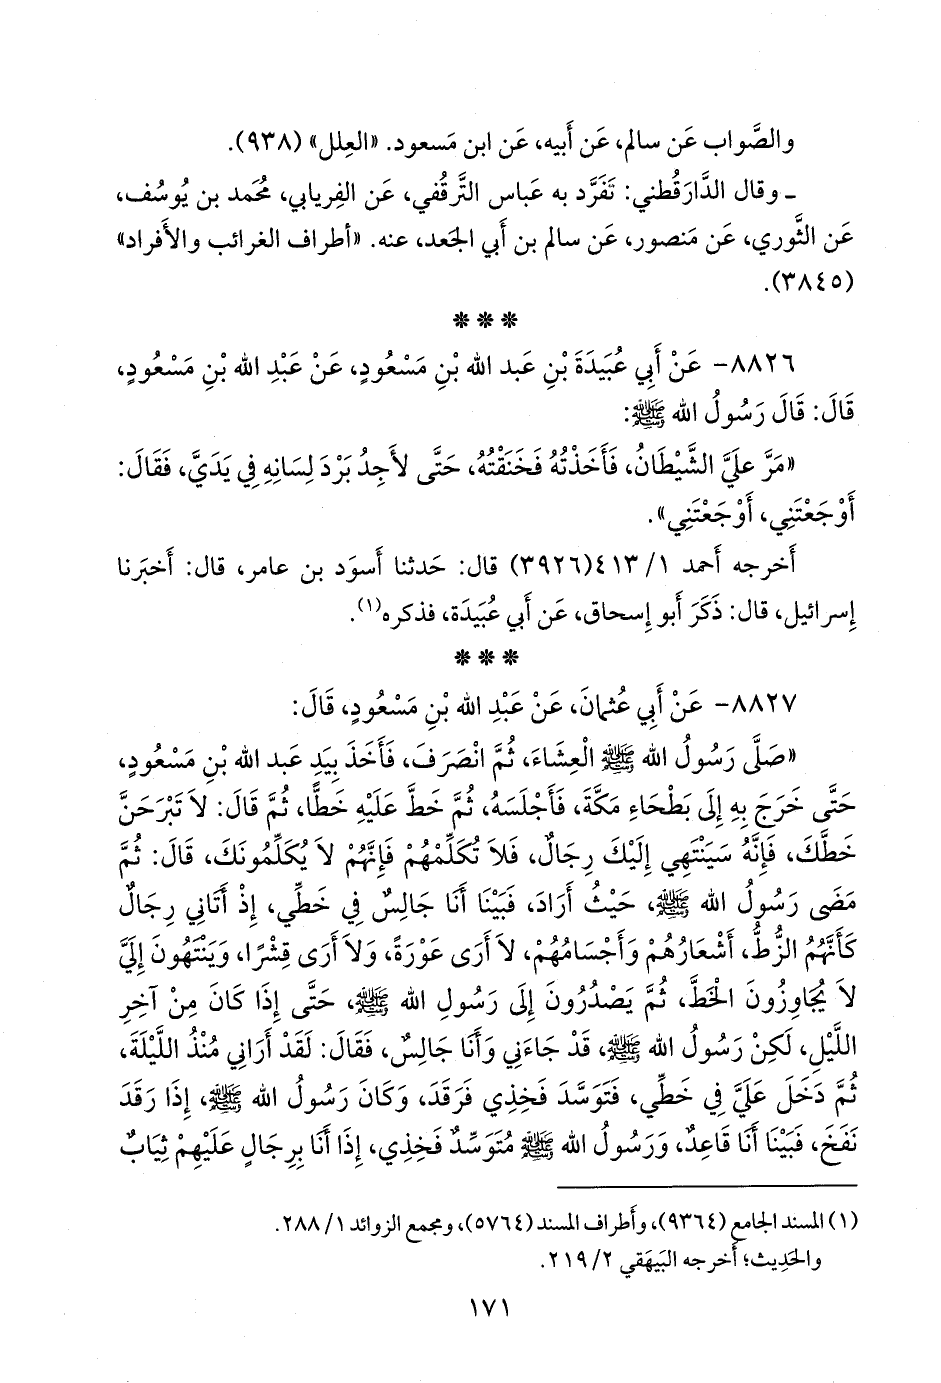 والصَّواب عَن سالم، عَن أَبيه، عَن ابن مَسعود. «العِلل» (٩٣٨).
ـ وقال الدَّارَقُطني: تَفَرَّد به عَباس التَّرقُفي، عَن الفِريابي، مُحَمد بن يُوسُف،
عَن الثَّوري، عَن مَنصور، عَن سالم بن أَبي الجَعد، عنه. «أطراف الغرائب والأَفراد»
(٣٨٤٥).
* * *
٨٨٢٦- عَنْ أَبِي عُبَيدَةَ بْنِ عَبد الله بْنِ مَسْعُودٍ، عَنْ عَبْدِ الله بْنِ مَسْعُودٍ،
قَالَ: قَالَ رَسُولُ الله ﷺ:
«مَرَّ عليَّ الشَّيْطَانُ، فَأَخَذْتُهُ فَخَنَقْتُهُ، حَتَّى لأَجِدُ بَرْدَ لِسَانِهِ فِي يَدَيَّ، فَقَالَ:
أَوْجَعْتَنِي، أَوْجَعْتَنِي».
أَخرجه أَحمد ١/ ٤١٣(٣٩٢٦) قال: حَدثنا أَسوَد بن عامر، قال: أَخبَرنا
إِسرائيل، قال: ذَكَرَ أَبو إِسحاق، عَن أَبي عُبَيدَة، فذكره(١).
* * *
٨٨٢٧- عَنْ أَبِي عُثمانَ، عَنْ عَبْدِ الله بْنِ مَسْعُودٍ، قَالَ:
«صَلَّى رَسُولُ الله ﷺ الْعِشَاءَ، ثُمَّ انْصَرَفَ، فَأَخَذَ بِيَدِ عَبد الله بْنِ مَسْعُودٍ،
حَتَّى خَرَجَ بِهِ إِلَى بَطْحَاءِ مَكَّةَ، فَأَجْلَسَهُ، ثُمَّ خَطَّ عَلَيْهِ خَطًّا، ثُمَّ قَالَ: لاَ تَبْرَحَنَّ
خَطَّكَ، فَإِنَّهُ سَيَنْتَهِي إِلَيْكَ رِجَالٌ، فَلاَ تُكَلِّمْهُمْ فَإِنَّهُمْ لاَ يُكَلِّمُونَكَ، قَالَ: ثُمَّ
مَضَى رَسُولُ الله ﷺ، حَيْثُ أَرَادَ، فَبَيْنَا أَنَا جَالِسٌ فِي خَطِّي، إِذْ أَتَانِي رِجَالٌ
كَأَنَّهُمُ الزُّطُّ، أَشْعَارُهُمْ وَأَجْسَامُهُمْ، لاَ أَرَى عَوْرَةً، وَلاَ أَرَى قِشْرًا، وَيَنْتَهُونَ إِلَيَّ
لاَ يُجَاوِزُونَ الْخَطَّ، ثُمَّ يَصْدُرُونَ إِلَى رَسُولِ الله ﷺ، حَتَّى إِذَا كَانَ مِنْ آخِرِ
اللَّيْلِ، لَكِنْ رَسُولُ الله ﷺ، قَدْ جَاءَنِي وَأَنَا جَالِسٌ، فَقَالَ: لَقَدْ أَرَانِي مُنْذُ اللَّيْلَةَ،
ثُمَّ دَخَلَ عَلَيَّ فِي خَطِّي، فَتَوَسَّدَ فَخِذِي فَرَقَدَ، وَكَانَ رَسُولُ الله ﷺ، إِذَا رَقَدَ
نَفَخَ، فَبَيْنَا أَنَا قَاعِدٌ، وَرَسُولُ الله ﷺ مُتَوَسِّدٌ فَخِذِي، إِذَا أَنَا بِرِجَالٍ عَلَيْهِمْ ثِيَابٌ
(١) المسند الجامع (٩٣٦٤)، وأطراف المسند (٥٧٦٤)، ومجمع الزوائد ١/ ٢٨٨.
والحَدِيث؛ أَخرجه البَيهَقي ٢/ ٢١٩.
١٧١